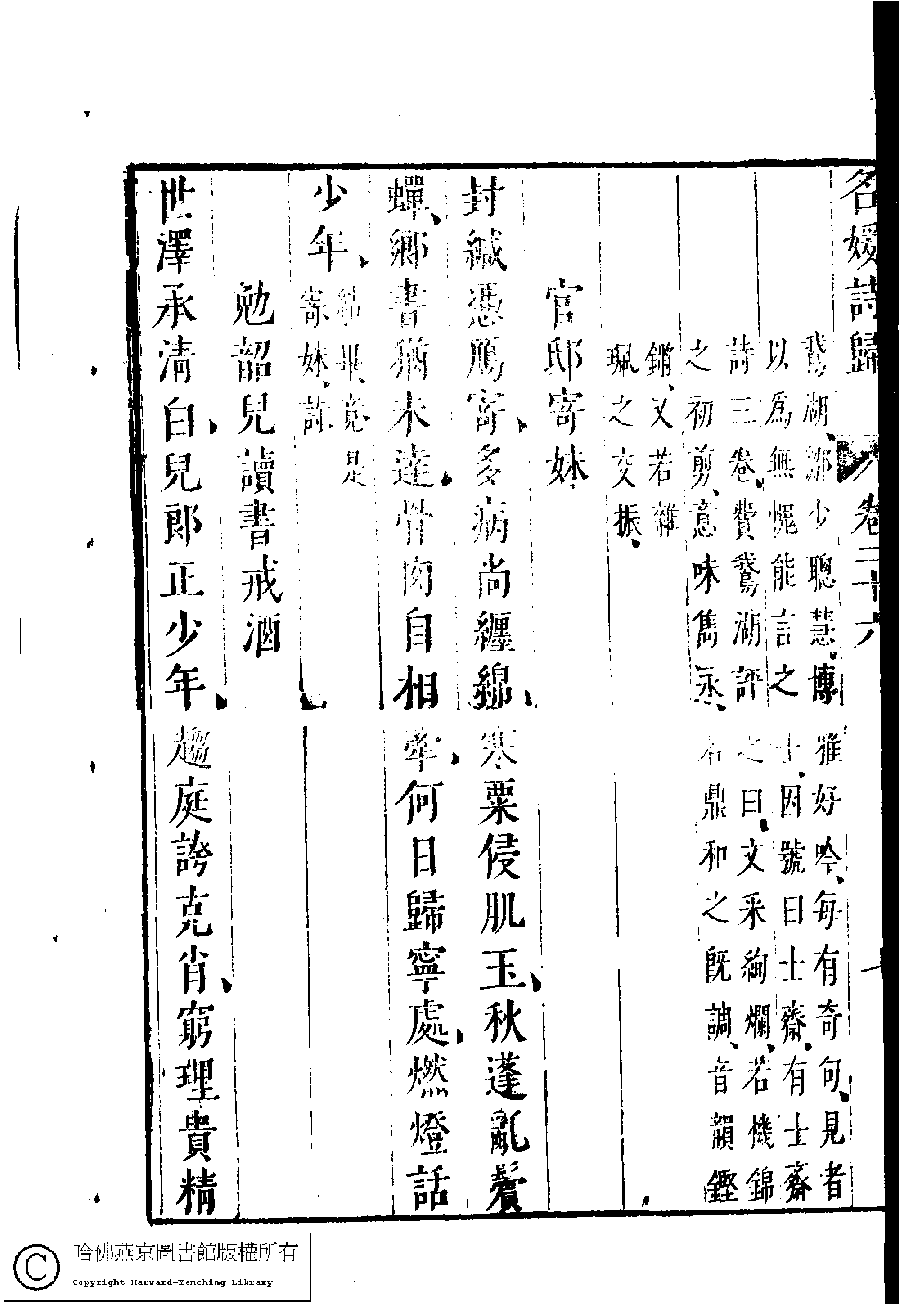 名媛詩歸 卷二十六 一
鵞湖鄒少聰慧博雅好吟每有奇句見者
以爲無慙能言之士因號曰士齋有士齋
詩三卷費鵞湖評之曰文采絢爛若機錦
之初剪意味雋永若鼎和之旣調音韻鏗
鏘又若雜珮之交振
官邸寄妹
封緘憑鴈寄多病尚纏綿寒粟侵肌玉秋蓬亂鬢
蟬鄉書猶未達骨肉自相牽何日歸寧處燃燈話
少年 結畢竟是寄妹詩
勉韶兒讀書戒酒
世澤承清白兒郎正少年趨庭誇克肖窮理貴精
哈佛燕京圖書館版權所有
Copyright Harvard-Yenching Library